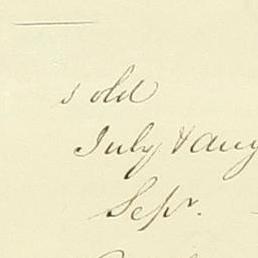 sold
July & Aug
Sepr.